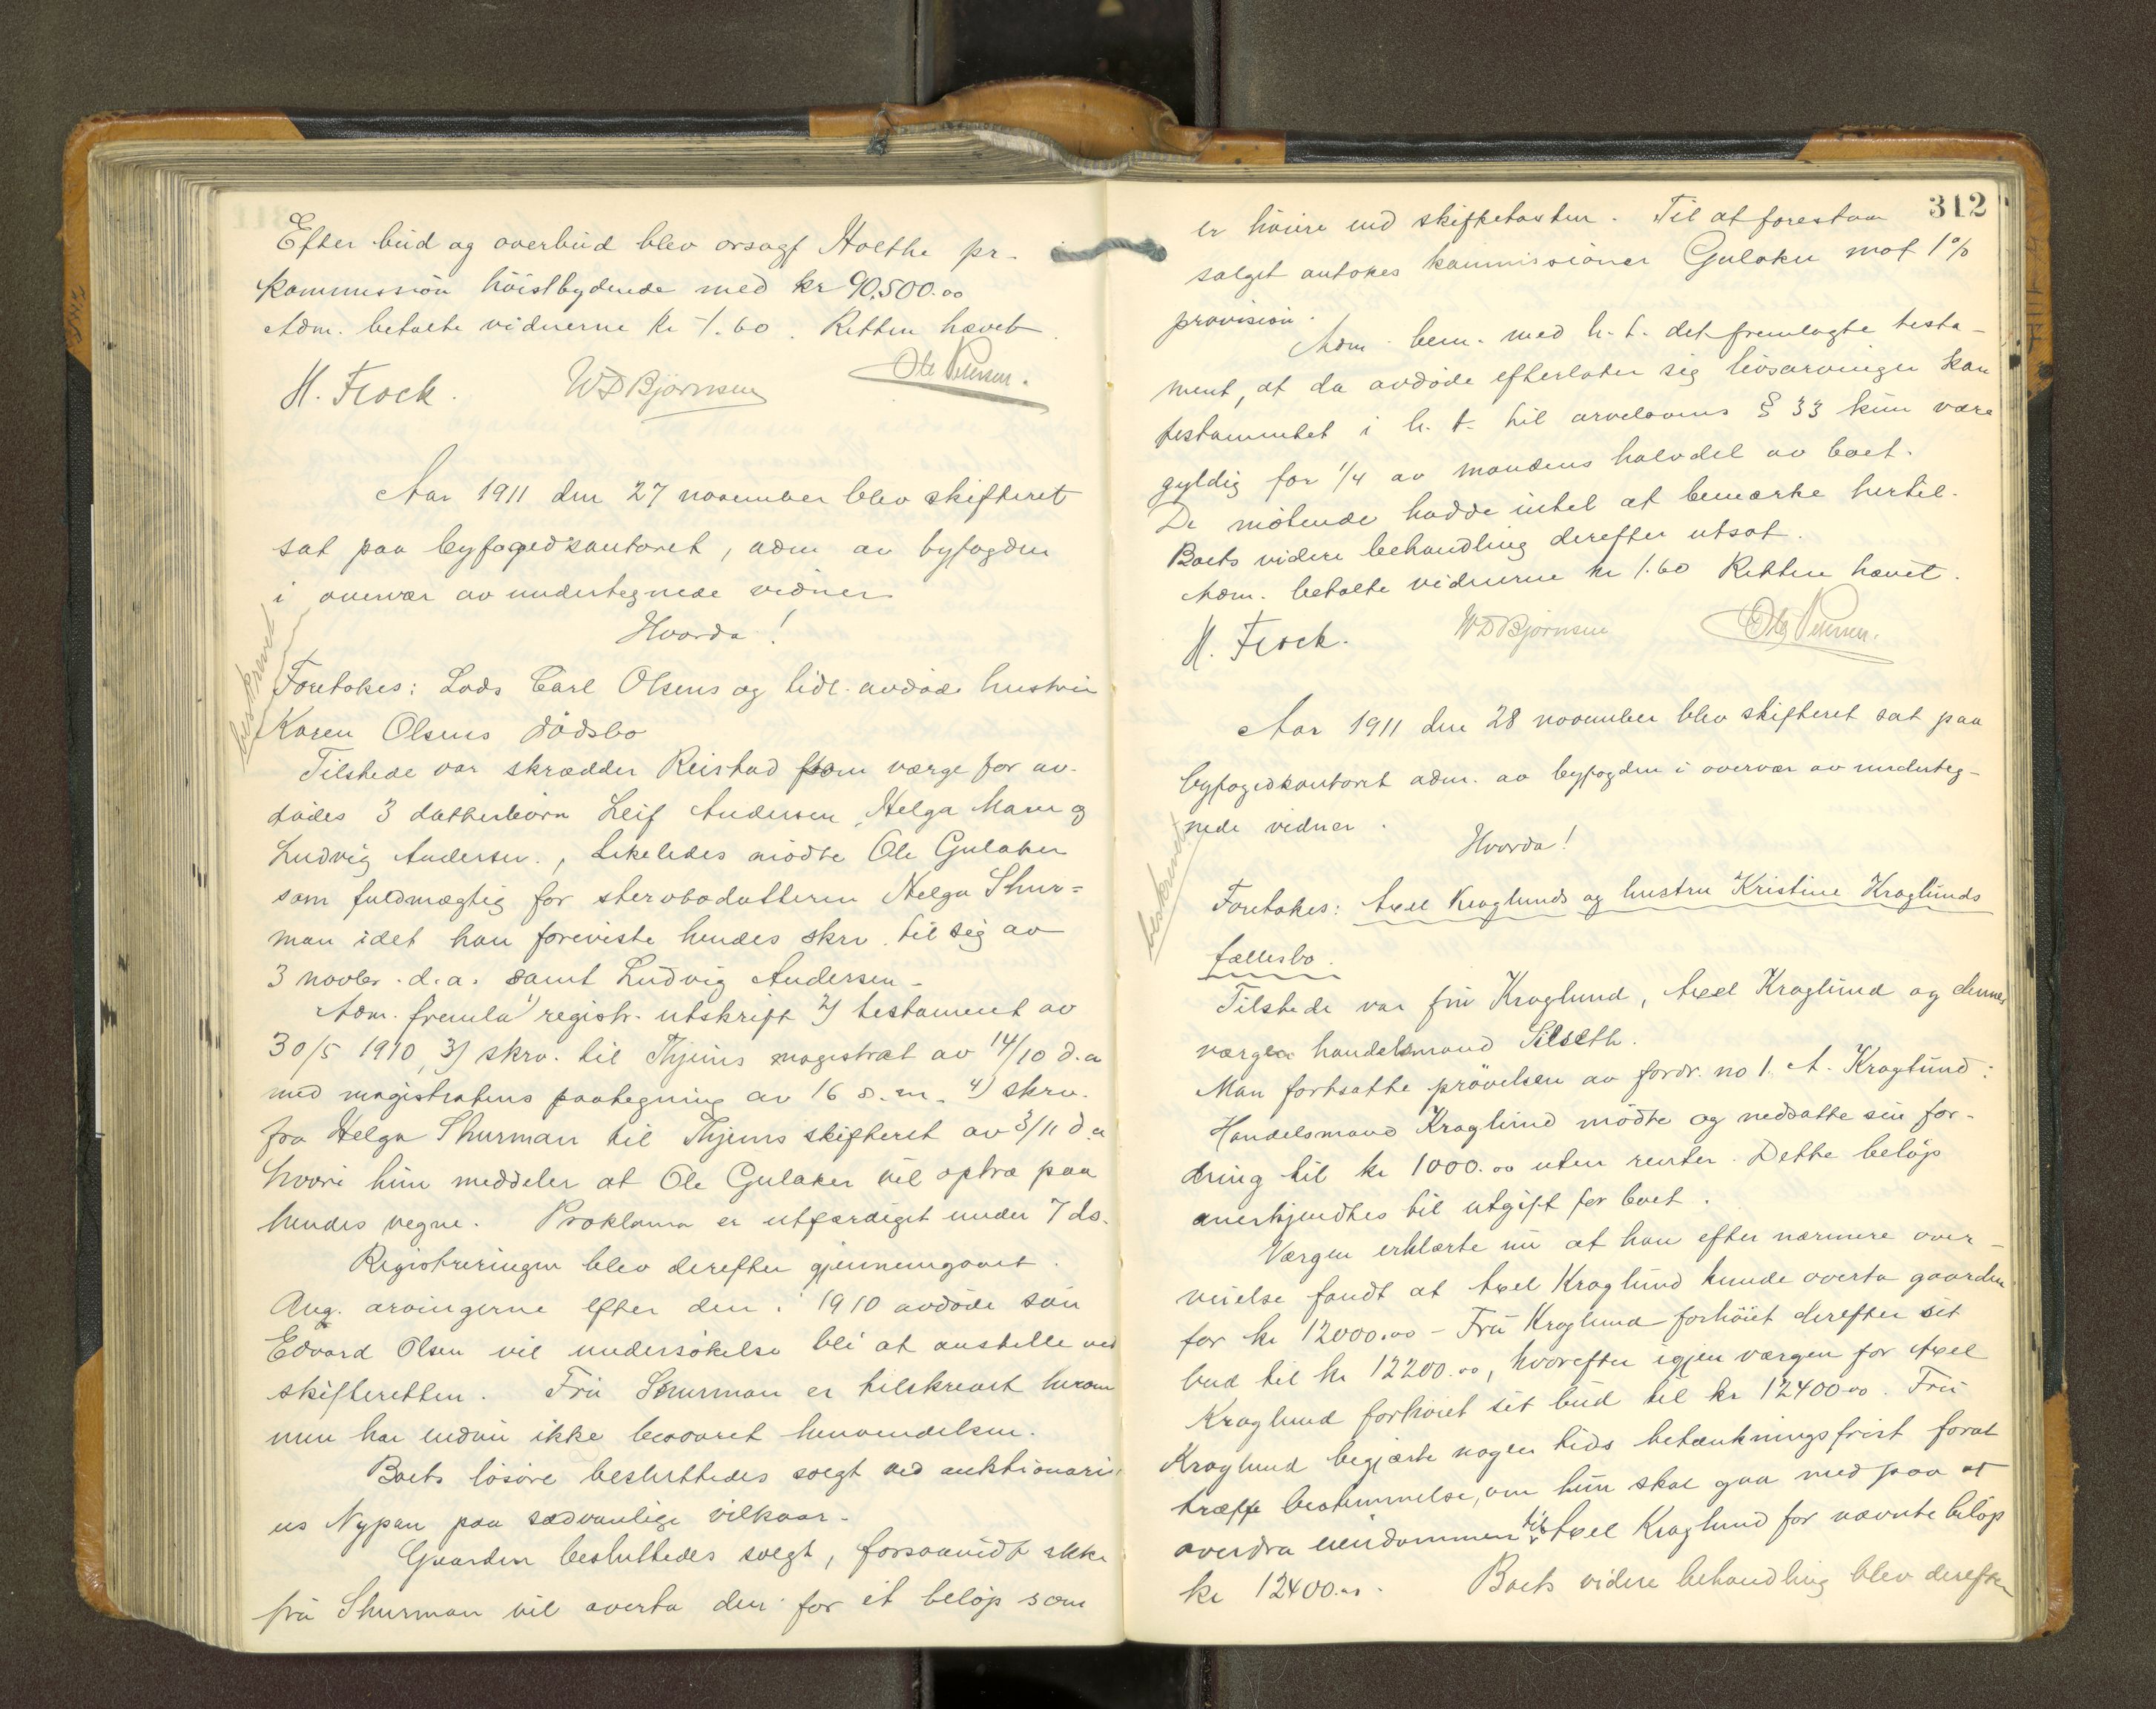 Efter bud og overbud blev orsagf Holthe pr.
kommission höistbydende med kr 90.500.00
Adm. betalte vidnerne kr 1.60. Retten hævet
H. Frock. WDBjörnsen Ole Petersen.
Aar 1911 den 27 november blev skifteret
sat paa byfogedkontoret, adm av byfogden
i overvær av undertegnede vidner.
Hvorda!
beskrevet
Foretokes: Lods Carl Olsens og tidl. avdöde hustru
Karen Olsens dödsbo
Tilstede var skrædder Reistad som værge for av-
dödes 3 datterbörn Leif Andersen, Helga Marie og
Ludvig Andersen., Likeledes mödte Ole Gulaker
som fuldmægtig for stervbodatteren Helga Thur=
man idet han foreviste hendes skrv. til sig av
3 novbr. d.a. samt Ludvig Andersen-
Adm. fremla 1) registr. utskrift 2) testament av
30/5 1910, 3) skrv. til Thjems magistrat av 14/10 d.a
med magistratens paategning av 16 s.m. 4) skrv.
fra Helga Thurman til Thjems skifteret av 3/11 d.a
hvori hun meddeler at Ole Gulaker vil optræ paa
hendes vegne. Proklama er utfærdiget under 7 ds.
Registreringen blev derefter gjennemgaaet.
Ang. arvingerne efter den i 1910 avdöde sön
Edvard Olsen vil undersökelse bli at anstille ved
skifteretten. Fru Thurman er tilskrevet herom
men har endnu ikke besvaret henvendelsen.
Boets lösöre besluttedes solgt ved auktionari-
us Nypan paa sædvanlige vilkaar-
Gaarden besluttedes solgt, forsaavidt ikke
fru Thurman vil overta den for et belöp som
312
er höiere end skiftetaxten. Til at forestaa
salget antokes kommissionær Gulaker mot 1%
provision.
Adm. bem. med h.t. det fremlagte testa-
ment, at da avdöde efterlater sig livsarvinger kan
testamentet i h.t. til arvelovens § 33 kun være
gyldig for 1/4 av mandens halvdel av boet.
De mötende hadde intet at bemærke hertil.
Boets videre behandling derefter utsat.
Adm. betalte vidnerne kr 1.60 Retten hævet.
H. Frock. WDBjörnsen Ole Petersen.
Aar 1911 den 28 november blev skifteret sat paa
byfogedkontoret adm. av byfogden i overvær av underteg-
nede vidner.
Hvorda!
beskrevet
Foretokes: Axel Kraglunds og hustru Kristine Kraglunds
fællesbo.
Tilstede var fru Kraglund, Axel Kraglund og dennes
værge handelsmand Silseth.
Man fortsatte prövelsen av fordr. no 1. A. Kraglund:
Handelsmand Kraglund mödte og nedsatte sin for-
dring til kr 1000.00 uten renter. Dette belöp
anerkjendtes til utgift for boet.
Værgen erklærte nu at han efter nærmere over-
veielse fandt at Axel Kraglund kunde overta gaarden
for kr 12000.00 - Fru Kraglund forhöiet derefter sit
bud til kr 12200.00, hvorefter igjen værgen for Axel
Kraglund forhöiet sit bud til kr 12400.00. Fru
Kraglund begjærte nogen tids betænkningsfrist forat
træffe bestemmelse, om hun skal gaa med paa at
overdra eiendommen til Axel Kraglund for nævnte belöp
kr 12400.00. Boets videre behandling blev derefter